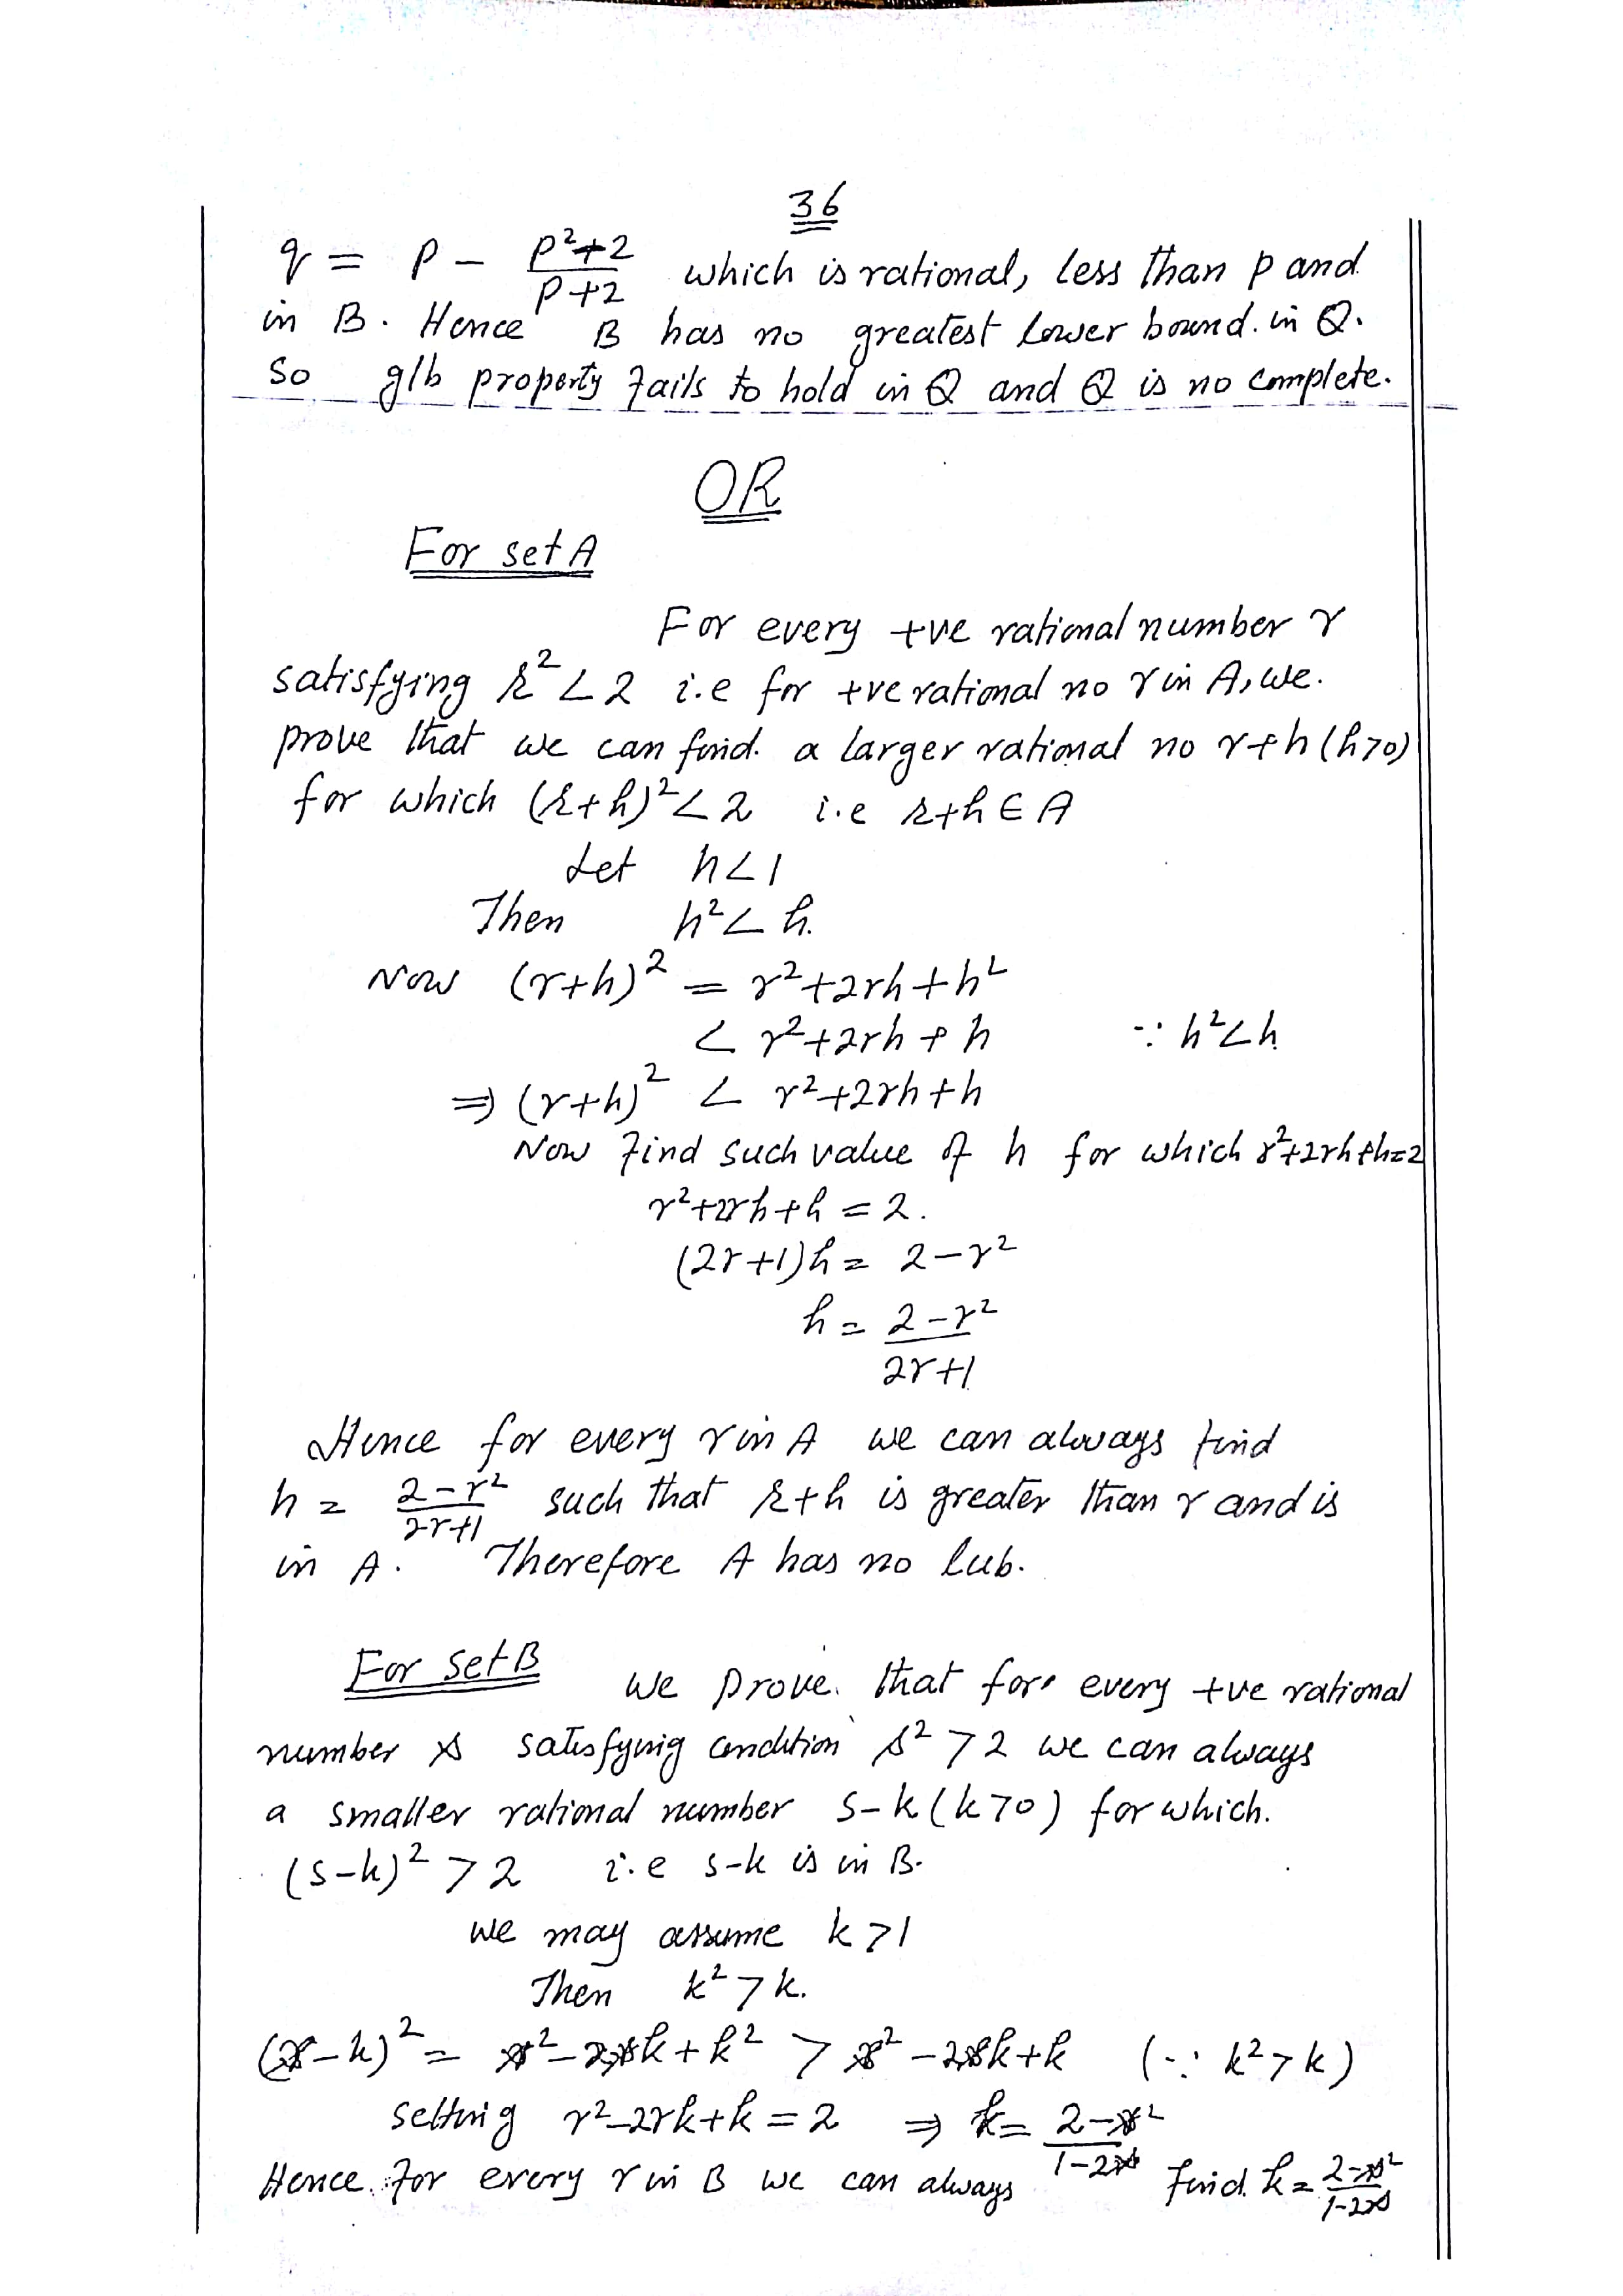 36
q = p - (p²+2)/(p+2) which is rational, less than p and
in B. Hence B has no greatest lower bound. in Q.
So glb property fails to hold in Q and Q is no complete.
OR
For set A
For every +ve rational number r
satisfying r² < 2 i.e for +ve rational no r in A, we.
prove that we can find. a larger rational no r+h (h>0)
for which (r+h)² < 2 i.e r+h ∈ A
Let h<1
Then h² < h.
Now (r+h)² = r²+2rh+h²
< r²+2rh+h ∵ h²<h
⇒ (r+h)² < r²+2rh+h
Now find such value of h for which r²+2rh+h=2
r²+2rh+h = 2.
(2r+1)h = 2-r²
h = (2-r²)/(2r+1)
Hence for every r in A we can always find
h = (2-r²)/(2r+1) such that r+h is greater than r and is
in A. Therefore A has no lub.
For set B We prove. that for every +ve rational
number s satisfying condition s² > 2 we can always
a smaller rational number s-k (k>0) for which.
(s-k)² > 2 i.e s-k is in B.
we may assume k>1
Then k² > k.
(s-k)² = s²-2sk+k² > s²-2sk+k (∵ k²>k)
setting r²-2rk+k = 2 ⇒ k = (2-s²)/(1-2s)
Hence for every r in B we can always find. k = (2-s²)/(1-2s)